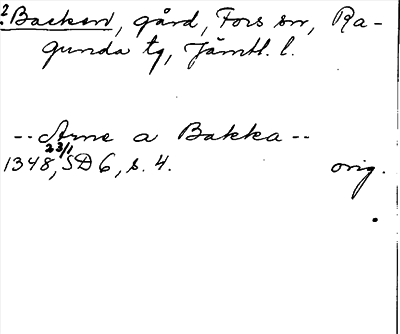 ? Backen, gård, Fors sn, Ra-
gunda tg, Jämtl. l.
-- Arne a Bakka --
1348, 23/1 SD 6, s. 4. orig.